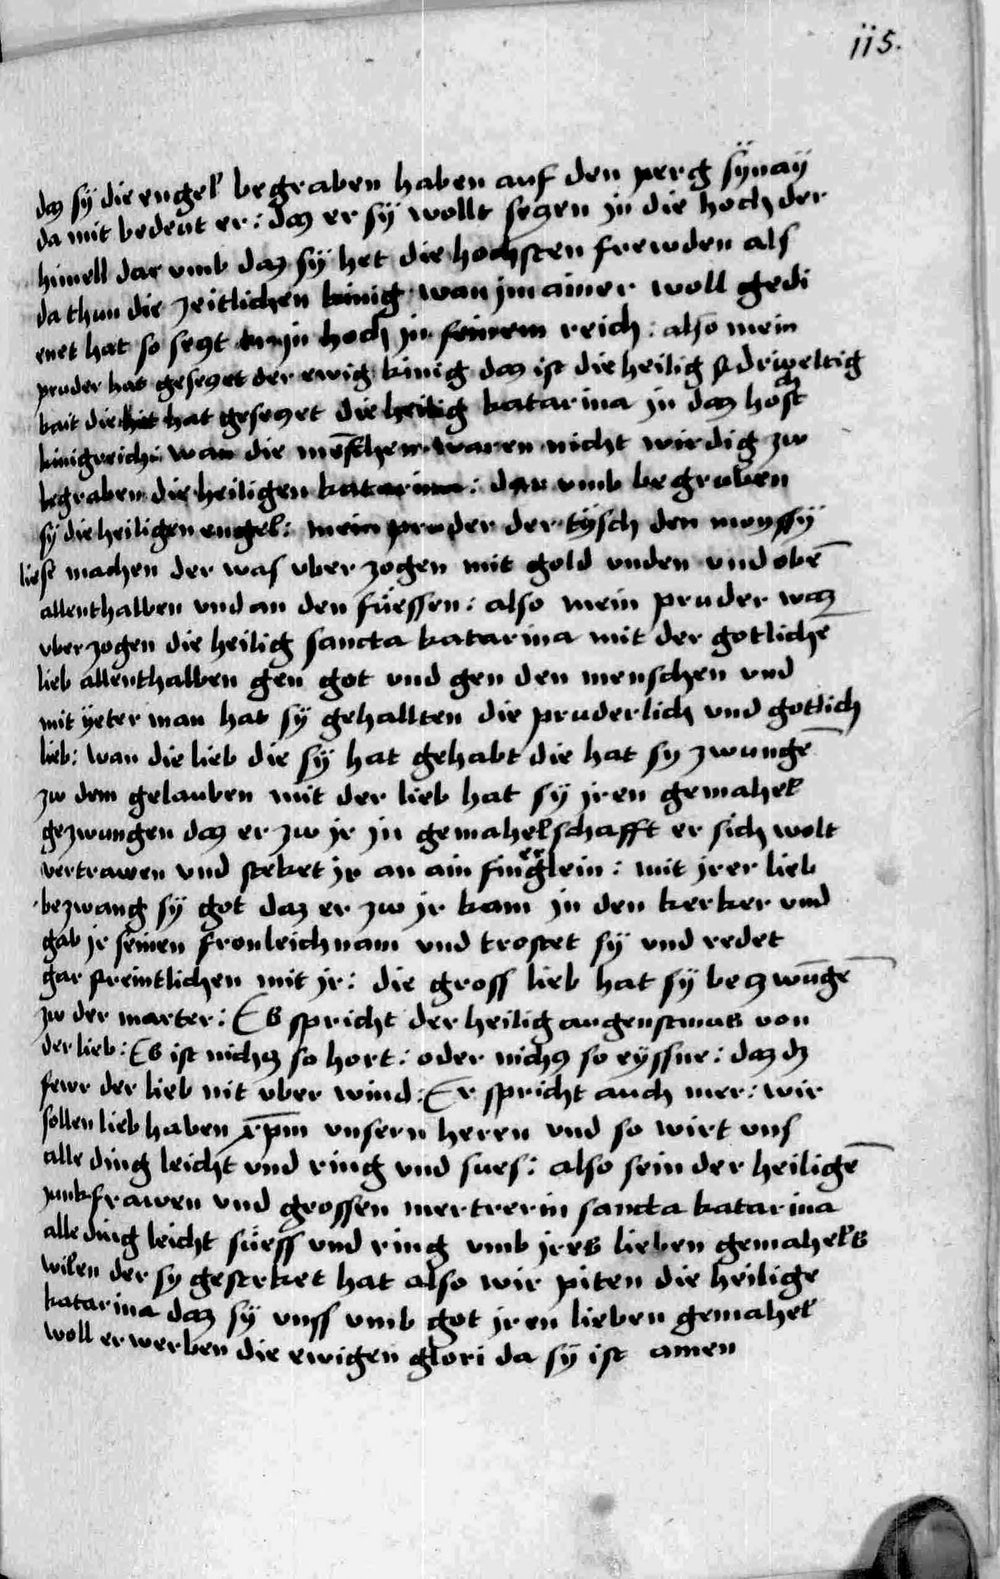 115.
daz sÿ die engel begraben haben auf den perg sÿnaÿ
da mit bedeut er: daz er sÿ wollt seczen in die hoch der
himell dar vmb daz sÿ het die hochsten frewden als
da thun die zeitlichen kinig wan jm ainer woll gedi
enet hat so seczt in hoch in seinem reich: also mein
pruder hat geseczet der ewig kinig daz ist die heilig driveltig
kait die hat geseczet die heilig katarina in daz host
kinigreich: wan die mēschen waren nicht wirdig zw
begraben die heiligen katarina: dar vmb begruben
sÿ die heiligen engel: mein pruder der tÿsch den moyssÿ
liess machen der was vber zogen mit gold vnden vnd obē
allenthalben vnd an den füessen: also mein pruder waz
vberzogen die heilig sancta katarina mit der gotlichē
lieb allenthalben gen got vnd gen den menschen vnd
mit ÿeter man hat sÿ gehallten die pruderlich vnd gotlich
lieb: wan die lieb die sÿ hat gehabt die hat sy zwungē
zw dem gelauben mit der lieb hat sÿ jren gemahel
gezwungen daz er zw jr in gemahelschafft er sich wolt
vertrawen vnd steket jr an ain fingerlein: mit jrer lieb
bezwang sÿ got daz er zw jr kam in den kerker vnd
gab jr seinen fronleichnam vnd trostet sÿ vnd redet
gar freintlichen mit jr: die gross lieb hat sÿ beczwūgē
zw der marter: Es spricht der heilig augenstinus von
der lieb: Es ist nichcz so hort: oder nichcz so eÿssne: daz dz
fewr der lieb nit vber wind: Er spricht auch mer: wir
sollen lieb haben xp̄m vnsern herren vnd so wirt vns
alle ding leicht vnd ring vnd sues: also sein der heiligē
junkfrawen vnd grossen mertrerin sancta katarina
alle ding leicht süess vnd ring vmb jres lieben gemahels
wilen der sy gesterket hat also wir piten die heilige
katarina daz sÿ vnss vmb got jren lieben gemahel
woll erwerben die ewigen glori da sÿ ist amen